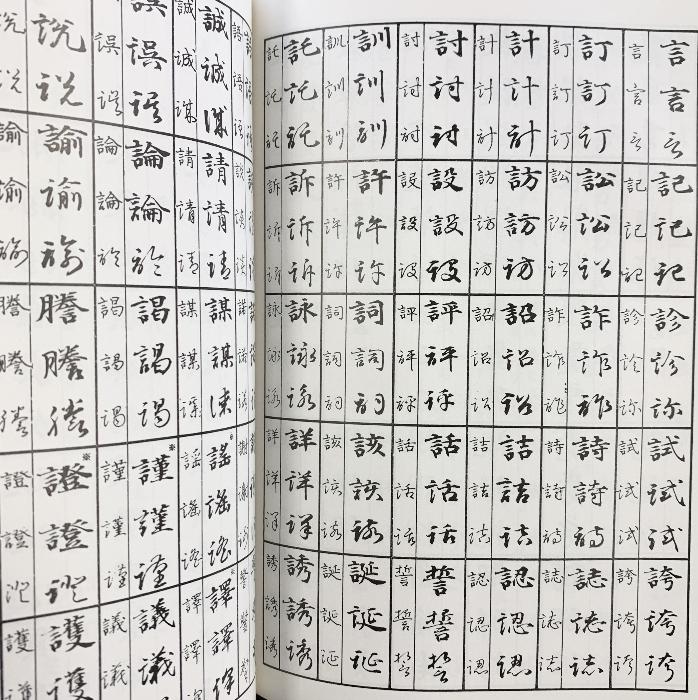 言言言
言言言
訂訂訂
訂訂訂
計計計
計計計
討討討
討討討
訓訓訓
訓訓訓
託託託
託託託
記記記
記記記
訟訟訟
訟訟訟
訪訪訪
訪訪訪
設設設
設設設
許許許
許許許
訴訴訴
訴訴訴
診診診
診診診
詐詐詐
詐詐詐
詔詔詔
詔詔詔
評評評
評評評
詞詞詞
詞詞詞
詠詠詠
詠詠詠
試試試
試試試
詩詩詩
詩詩詩
詰詰詰
詰詰詰
話話話
話話話
該該該
該該該
詳詳詳
詳詳詳
誇誇誇
誇誇誇
誌誌誌
誌誌誌
認認認
認認認
誓誓誓
誓誓誓
誕誕誕
誕誕誕
誘誘誘
誘誘誘
語語語
誠誠誠
誠誠誠
誤誤誤
誤誤
説説
説説
請請請
請請請
論論論
論論論
諭諭諭
諭諭諭
謀謀謀
謀謀謀
謁謁謁
謁謁謁
謄謄謄
謄謄謄
謡謡謡
謡謡謡
謹※謹謹
謹謹謹
證※證證
證證證
譯※譯譯
譯譯
議議
議議
護護
護護